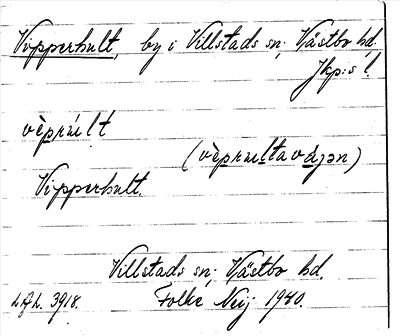 Vipperhult, by i Villstads sn; Västbo hd.
Jkp:s l.
vèprụlt
(vèprụltavágən)
Vipperhult.
Villstads sn; Västbo hd.
L.f.h. 3918. Folke Neij 1940.